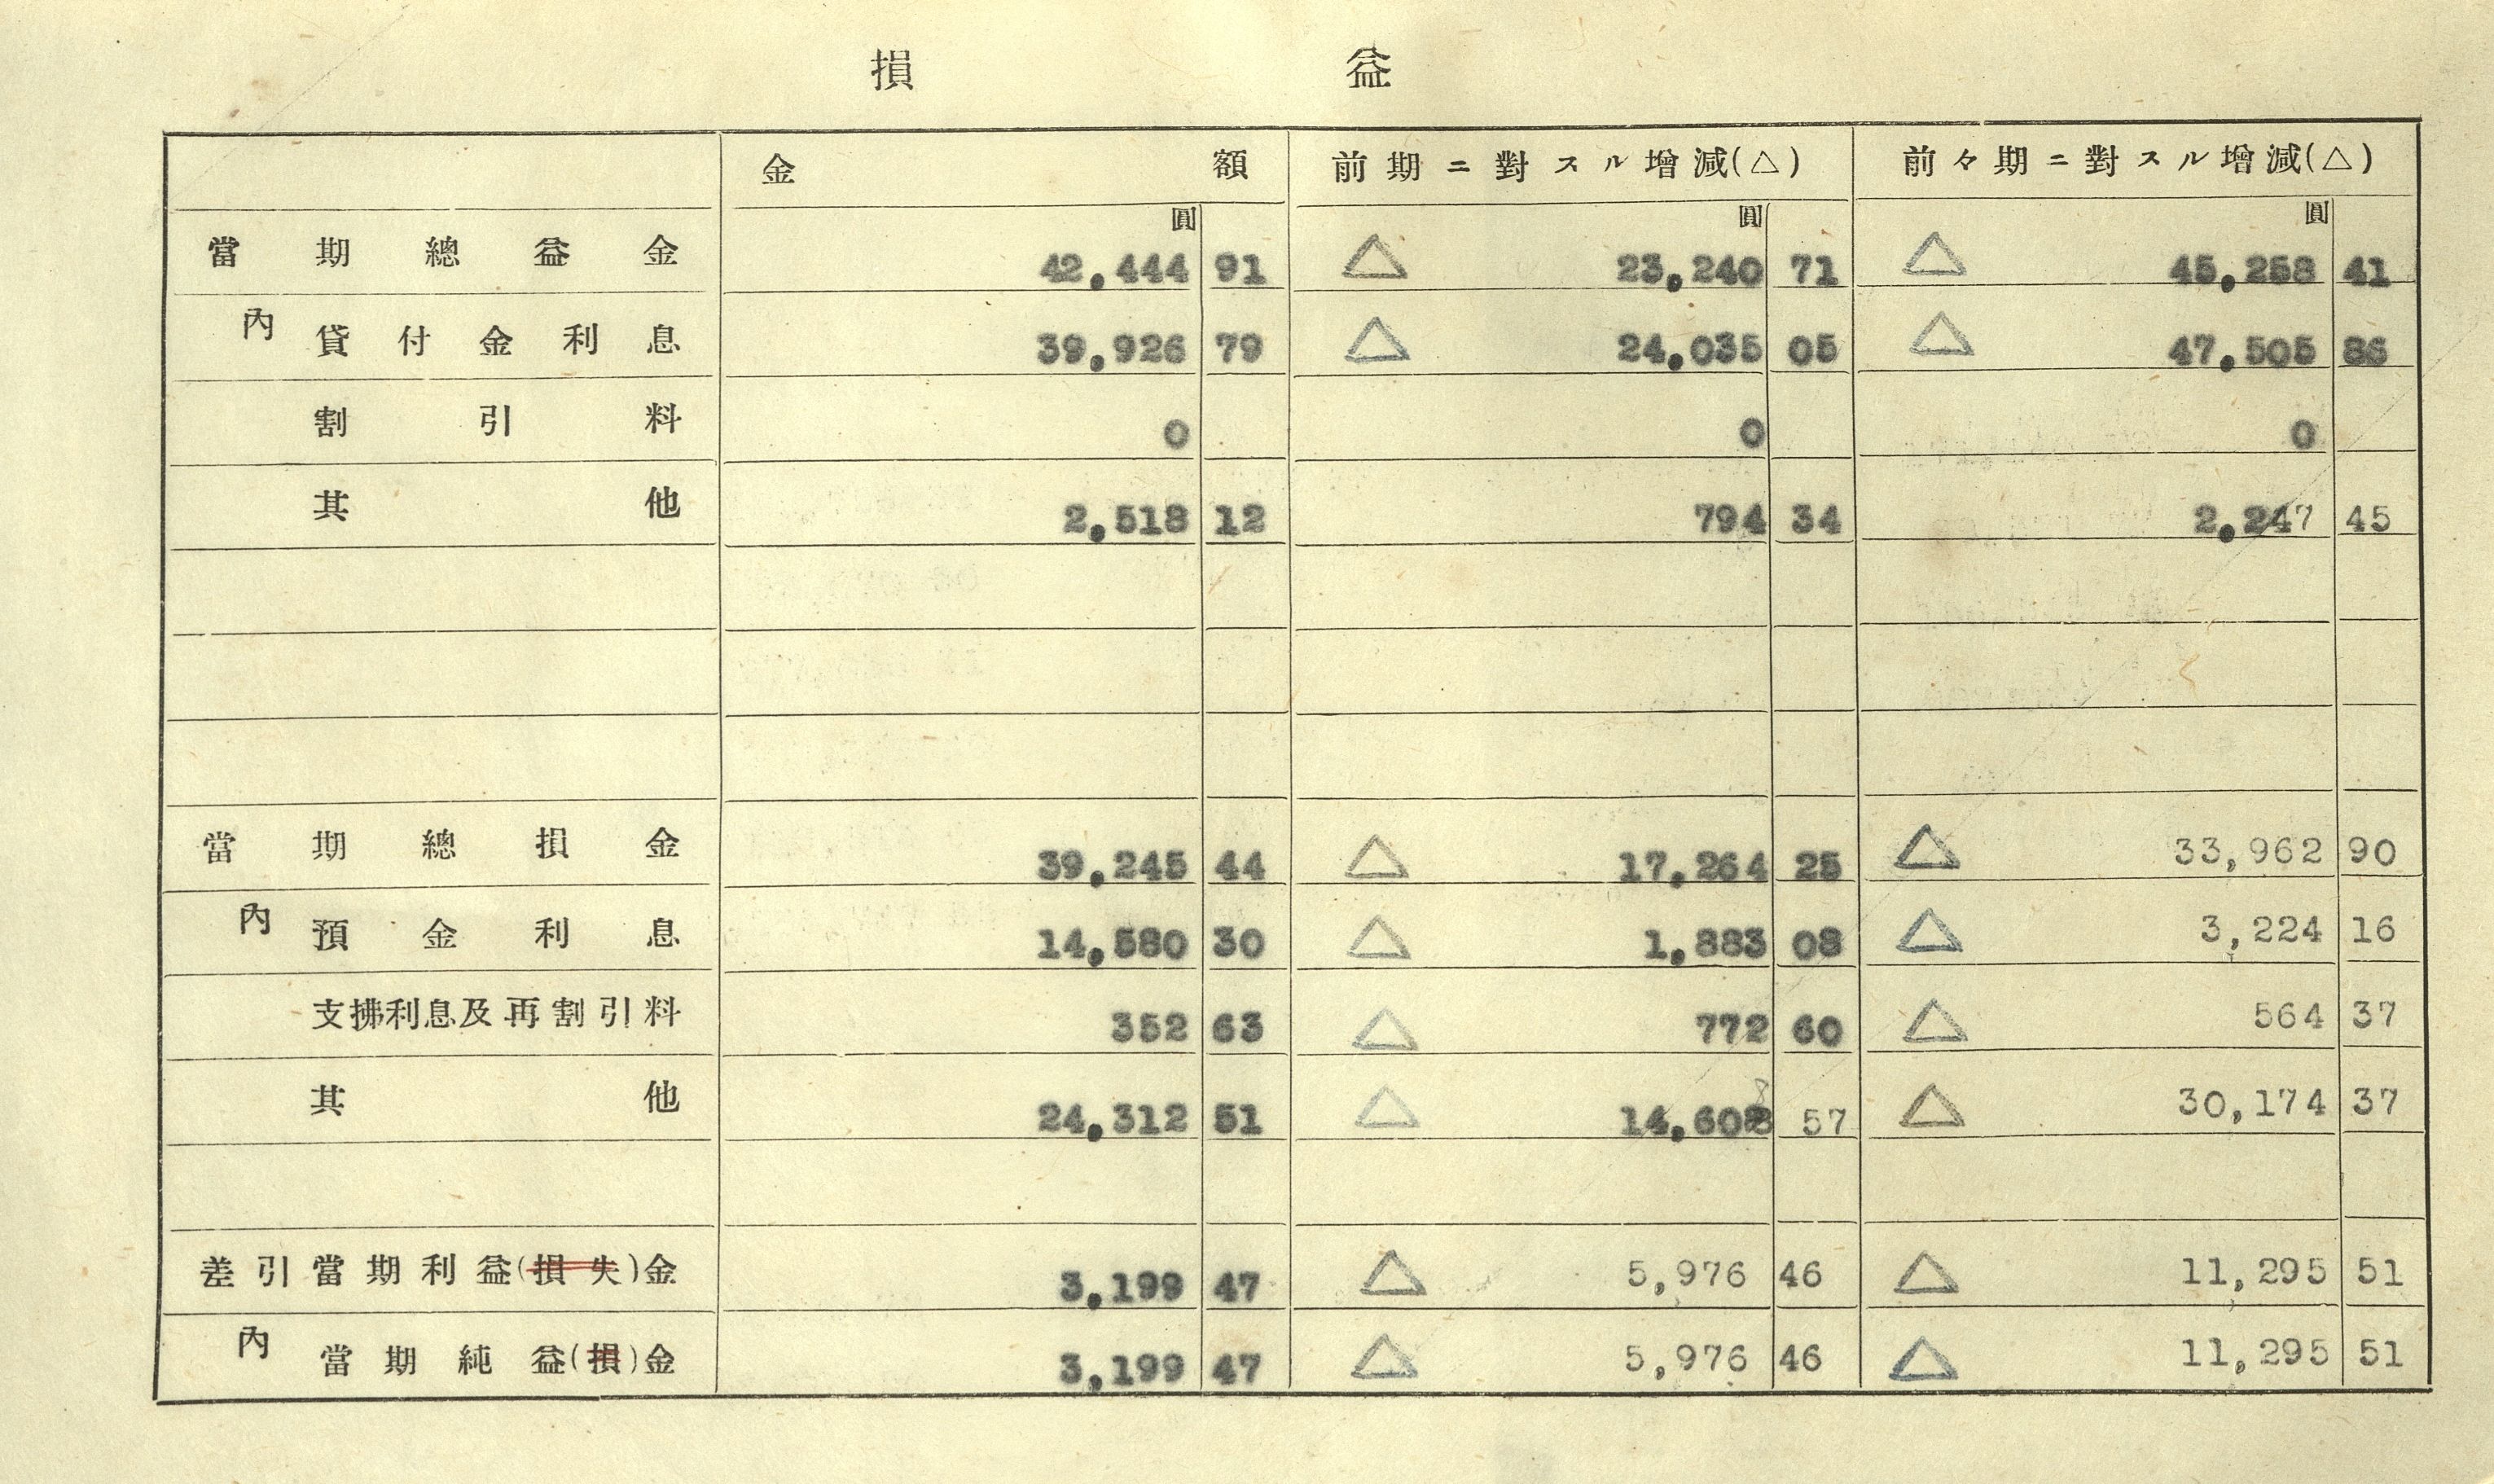 損益
金額 前期ニ對スル增減(△) 前々期ニ對スル增減(△)
圓 圓 圓
當期總益金 42,444 91 △ 23,240 71 △ 45,258 41
內 貸付金利息 39,926 79 △ 24,035 05 △ 47,505 86
割引料 0 0 0
其他 2,518 12 794 34 2,247 45
當期總損金 39,245 44 △ 17,264 25 △ 33,962 90
內 預金利息 14,580 30 △ 1,883 08 △ 3,224 16
支拂利息及再割引料 352 63 △ 772 60 △ 564 37
其他 24,312 51 △ 14,608 57 △ 30,174 37
差引當期利益(損失)金 3,199 47 △ 5,976 46 △ 11,295 51
內 當期純益(損)金 3,199 47 △ 5,976 46 △ 11,295 51